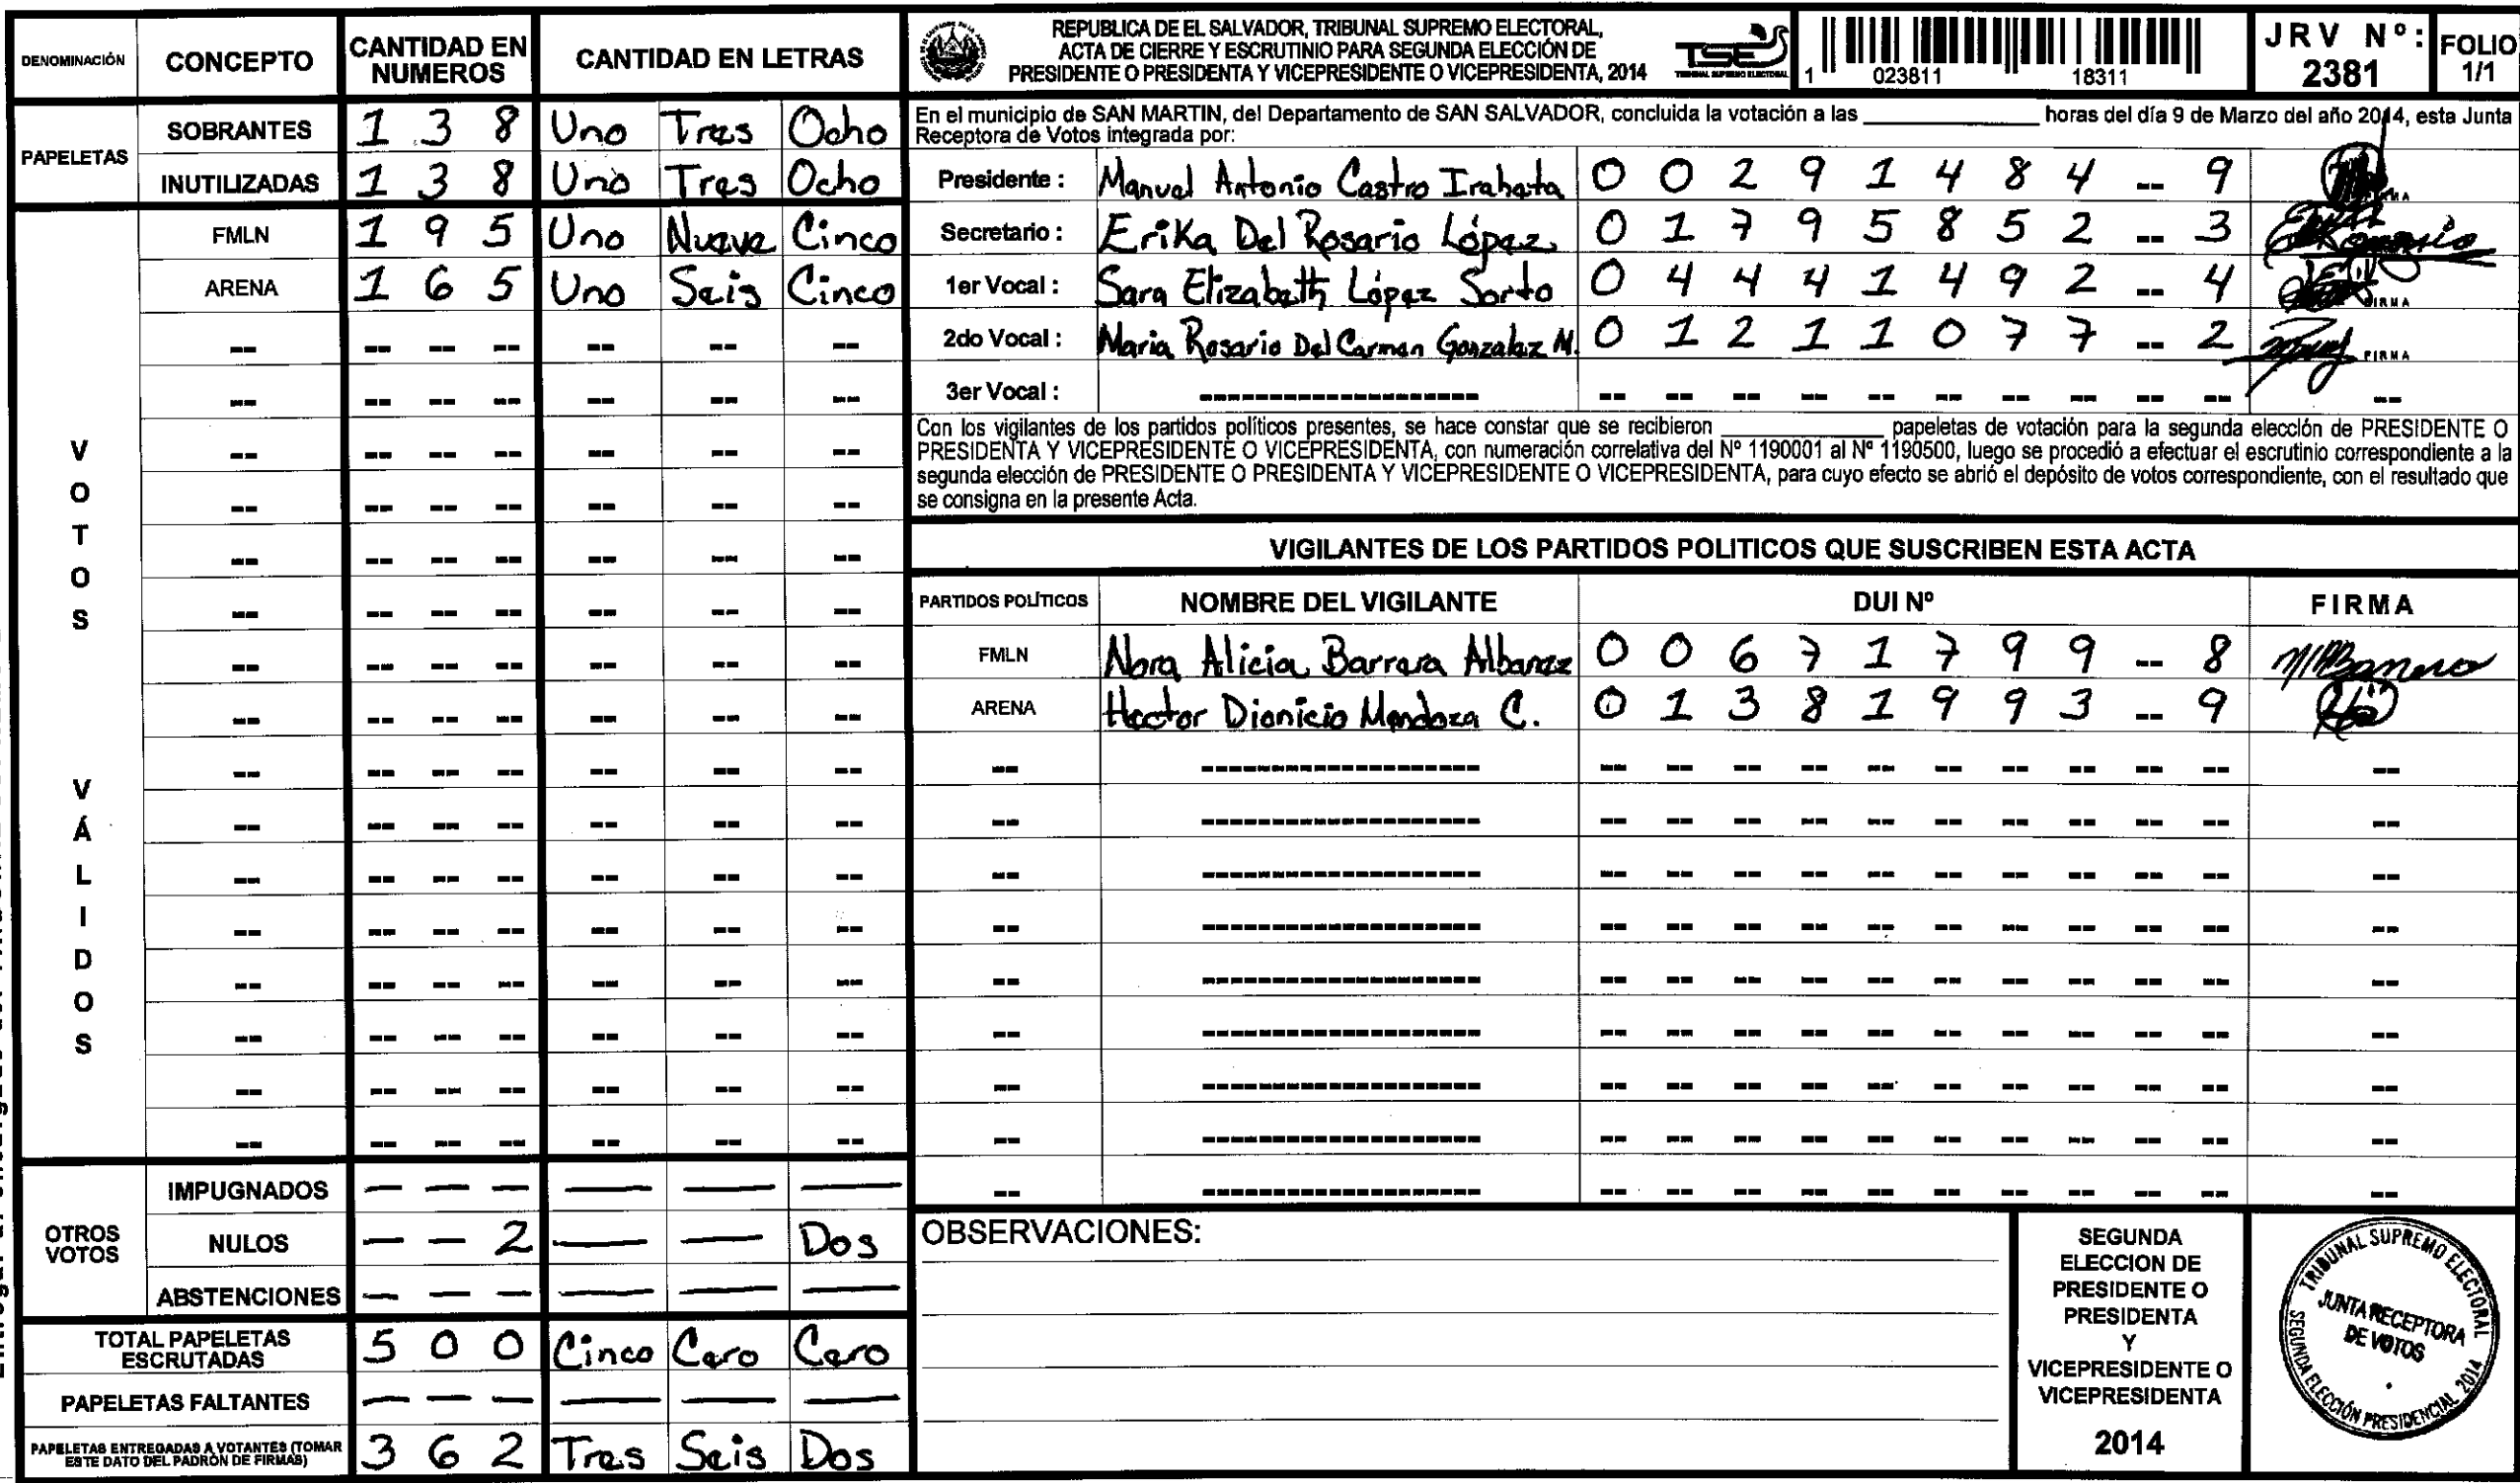 DENOMINACIÓN CONCEPTO CANTIDAD EN NUMEROS CANTIDAD EN LETRAS
PAPELETAS
SOBRANTES 1 3 8 Uno Tres Ocho
INUTILIZADAS 1 3 8 Uno Tres Ocho
VOTOS VÁLIDOS
FMLN 1 9 5 Uno Nueve Cinco
ARENA 1 6 5 Uno Seis Cinco
OTROS VOTOS
IMPUGNADOS — — — — — —
NULOS — — 2 — — Dos
ABSTENCIONES — — — — — —
TOTAL PAPELETAS ESCRUTADAS 5 0 0 Cinco Cero Cero
PAPELETAS FALTANTES — — — — — —
PAPELETAS ENTREGADAS A VOTANTES (TOMAR ESTE DATO DEL PADRÓN DE FIRMAS) 3 6 2 Tres Seis Dos
REPUBLICA DE EL SALVADOR, TRIBUNAL SUPREMO ELECTORAL,
ACTA DE CIERRE Y ESCRUTINIO PARA SEGUNDA ELECCIÓN DE
PRESIDENTE O PRESIDENTA Y VICEPRESIDENTE O VICEPRESIDENTA, 2014
TSE
TRIBUNAL SUPREMO ELECTORAL
1 023811 18311
JRV Nº: 2381
FOLIO 1/1
En el municipio de SAN MARTIN, del Departamento de SAN SALVADOR, concluida la votación a las ____ horas del día 9 de Marzo del año 2014, esta Junta
Receptora de Votos integrada por:
Presidente : Manuel Antonio Castro Iraheta 0 0 2 9 1 4 8 4 -- 9
Secretario : Erika Del Rosario López 0 1 7 9 5 8 5 2 -- 3
1er Vocal : Sara Elizabeth López Sorto 0 4 4 4 1 4 9 2 -- 4 FIRMA
2do Vocal : Maria Rosario Del Carmen Gonzalez M. 0 1 2 1 1 0 7 7 -- 2 FIRMA
3er Vocal :
Con los vigilantes de los partidos políticos presentes, se hace constar que se recibieron ____ papeletas de votación para la segunda elección de PRESIDENTE O
PRESIDENTA Y VICEPRESIDENTE O VICEPRESIDENTA, con numeración correlativa del Nº 1190001 al Nº 1190500, luego se procedió a efectuar el escrutinio correspondiente a la
segunda elección de PRESIDENTE O PRESIDENTA Y VICEPRESIDENTE O VICEPRESIDENTA, para cuyo efecto se abrió el depósito de votos correspondiente, con el resultado que
se consigna en la presente Acta.
VIGILANTES DE LOS PARTIDOS POLITICOS QUE SUSCRIBEN ESTA ACTA
PARTIDOS POLÍTICOS NOMBRE DEL VIGILANTE DUI Nº FIRMA
FMLN Nora Alicia Barrera Albanez 0 0 6 7 1 7 9 9 -- 8
ARENA Hector Dionicio Mendoza C. 0 1 3 8 1 9 9 3 -- 9
OBSERVACIONES:
SEGUNDA
ELECCION DE
PRESIDENTE O
PRESIDENTA
Y
VICEPRESIDENTE O
VICEPRESIDENTA
2014
TRIBUNAL SUPREMO ELECTORAL
JUNTA RECEPTORA
DE VOTOS
SEGUNDA ELECCIÓN PRESIDENCIAL 2014